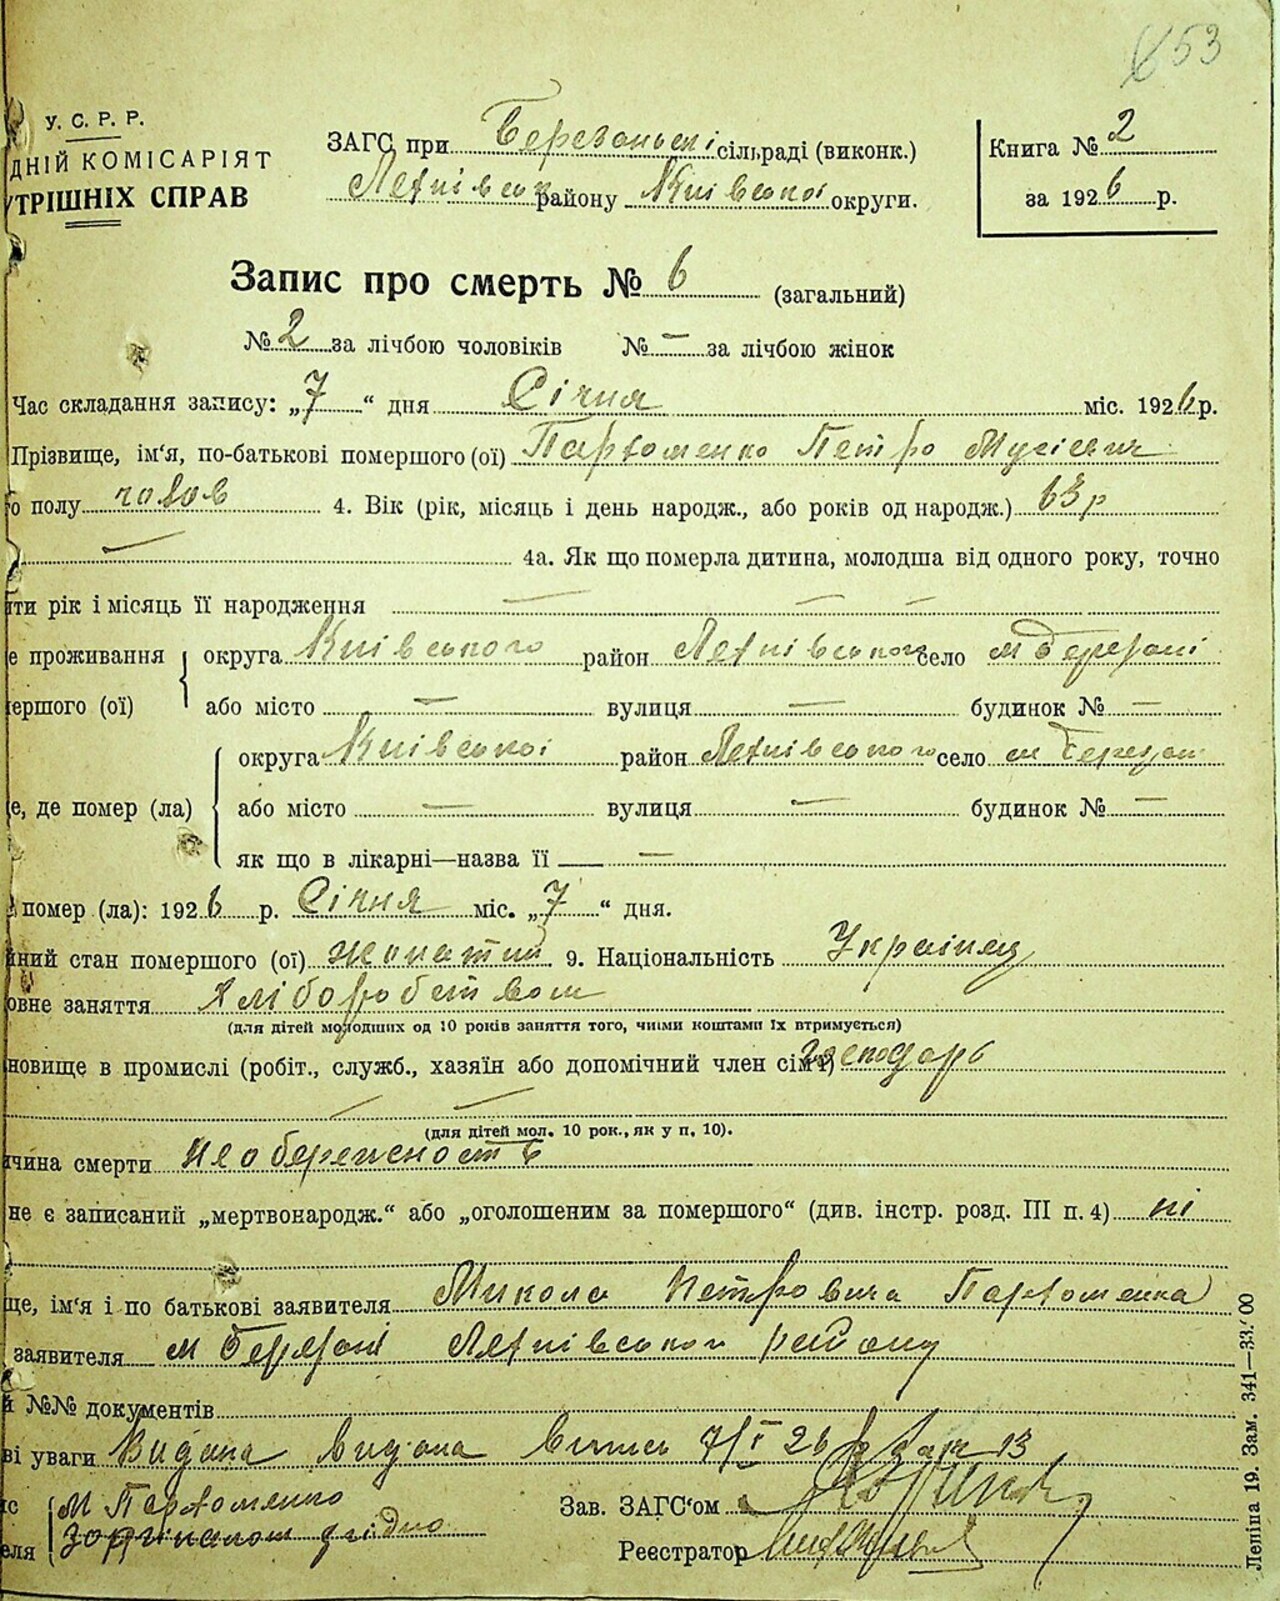 53
У. С. Р. Р.
ДНІЙ КОМІСАРІЯТ
УТРІШНІХ СПРАВ
ЗАГС при Березанські сільраді (виконк.)
району Київської округи.
Книга № 2
за 1926 р.
Запис про смерть № 6 (загальний)
№ 2 за лічбою чоловіків № — за лічбою жінок
Час складання запису: „7“ дня Січня міс. 1926 р.
Прізвище, ім'я, по-батькові помершого (ої) Пархоменко Петро
о полу чолов 4. Вік (рік, місяць і день народж., або років од народж.) 63 р
— 4а. Як що померла дитина, молодша від одного року, точно
ити рік і місяць її народження — — —
е проживання округа Київського район село м Березані
ершого (ої) або місто — вулиця — будинок № —
округа Київської район село м Березані
е, де помер (ла) або місто — вулиця — будинок № —
як що в лікарні—назва її —
помер (ла): 1926 р. Січня міс. „7“ дня.
йний стан помершого (ої) жонатий 9. Національність Українец
овне заняття хліборобством
(для дітей молодших од 10 років заняття того, чиїми коштами їх втримується)
новище в промислі (робіт., служб., хазяїн або допомічний член сім'ї) господарь
— —
(для дітей мол. 10 рок., як у п. 10).
чина смерти необережность
не є записаний „мертвонародж.“ або „оголошеним за помершого“ (див. інстр. розд. III п. 4) ні
ще, ім'я і по батькові заявителя Микола Петровича Пархоменка
заявителя м Березані району
й №№ документів
ві уваги Видана видана 7/I 26 13
с М Пархоменко
еля З оригіналом згідно
Зав. ЗАГС'ом
Реєстратор
Леніна 19. Зам. 341—33.00